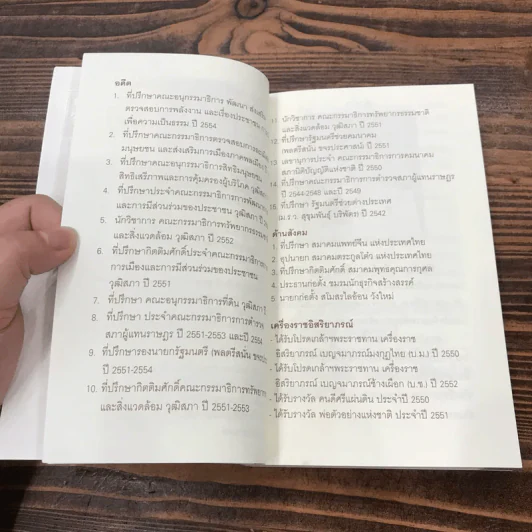 อดีต
1. ที่ปรึกษาคณะอนุกรรมาธิการ พัฒนา
ตรวจสอบการพลังงาน และเรื่องประชาชน
เพื่อความเป็นธรรม ปี 2554
2. ที่ปรึกษาคณะกรรมาธิการตรวจสอบ
มนุษยชน และส่งเสริมการเมืองภาคพลเมือง
3. ที่ปรึกษาคณะกรรมาธิการสิทธิมนุษยชน
สิทธิเสรีภาพและการคุ้มครองผู้บริโภค วุฒิสภา
4. ที่ปรึกษาประจำคณะกรรมาธิการการพัฒนา
และการมีส่วนร่วมของประชาชน วุฒิสภา ปี
5. นักวิชาการ คณะกรรมาธิการทรัพยากรธรรมชาติ
และสิ่งแวดล้อม วุฒิสภา ปี 2552
6. ที่ปรึกษากิตติมศักดิ์ประจำคณะกรรมาธิการ
การเมืองและการมีส่วนร่วมของประชาชน
วุฒิสภา ปี 2551-2553
7. ที่ปรึกษา คณะอนุกรรมาธิการที่ดิน วุฒิสภา
8. ที่ปรึกษา ประจำคณะกรรมาธิการการตำรวจ
สภาผู้แทนราษฎร ปี 2551-2553 และปี
9. ที่ปรึกษารองนายกรัฐมนตรี (พลตรีสนั่น
ปี 2551-2554
10. ที่ปรึกษากิตติมศักดิ์คณะกรรมาธิการทรัพยากร
และสิ่งแวดล้อม วุฒิสภา ปี 2551-2553
11. นักวิชาการ คณะกรรมาธิการทรัพยากรธรรมชาติ
และสิ่งแวดล้อม วุฒิสภา ปี 2551
12. ที่ปรึกษารัฐมนตรีช่วยคมนาคม
(พลตรีสนั่น ขจรประศาสน์) ปี 2551
13 เลขานุการประจำ คณะกรรมาธิการการคมนาคม
สภานิติบัญญัติแห่งชาติ ปี 2550
14 ที่ปรึกษาคณะกรรมาธิการการตำรวจสภาผู้แทนราษฎร
ปี 2544-2548 และปี 2549
15 ที่ปรึกษา รัฐมนตรีช่วยต่างประเทศ
(ม.ร.ว. สุขุมพันธุ์ บริพัตร) ปี 2542
ด้านสังคม
1. ที่ปรึกษา สมาคมแพทย์จีน แห่งประเทศไทย
2. อุปนายก สมาคมตระกูลโค้ว แห่งประเทศไทย
3. ที่ปรึกษากิตติมศักดิ์ สมาคมพุทธคุณการกุศล
4. ประธานก่อตั้ง ชมรมนักธุรกิจสร้างสรรค์
5 นายกก่อตั้ง สโมสรไลอ้อน วังใหม่
เครื่องราชอิสริยาภรณ์
- ได้รับโปรดเกล้าฯพระราชทาน เครื่องราช
อิสริยาภรณ์ เบญจมาภรณ์มงกุฎไทย (บ.ม.) ปี 2550
- ได้รับโปรดเกล้าฯพระราชทาน เครื่องราช
อิสริยาภรณ์ เบญจมาภรณ์ช้างเผือก (บ.ช.) ปี 2552
- ได้รับรางวัล คนดีศรีแผ่นดิน ประจำปี 2550
- ได้รับรางวัล พ่อตัวอย่างแห่งชาติ ประจำปี 2551